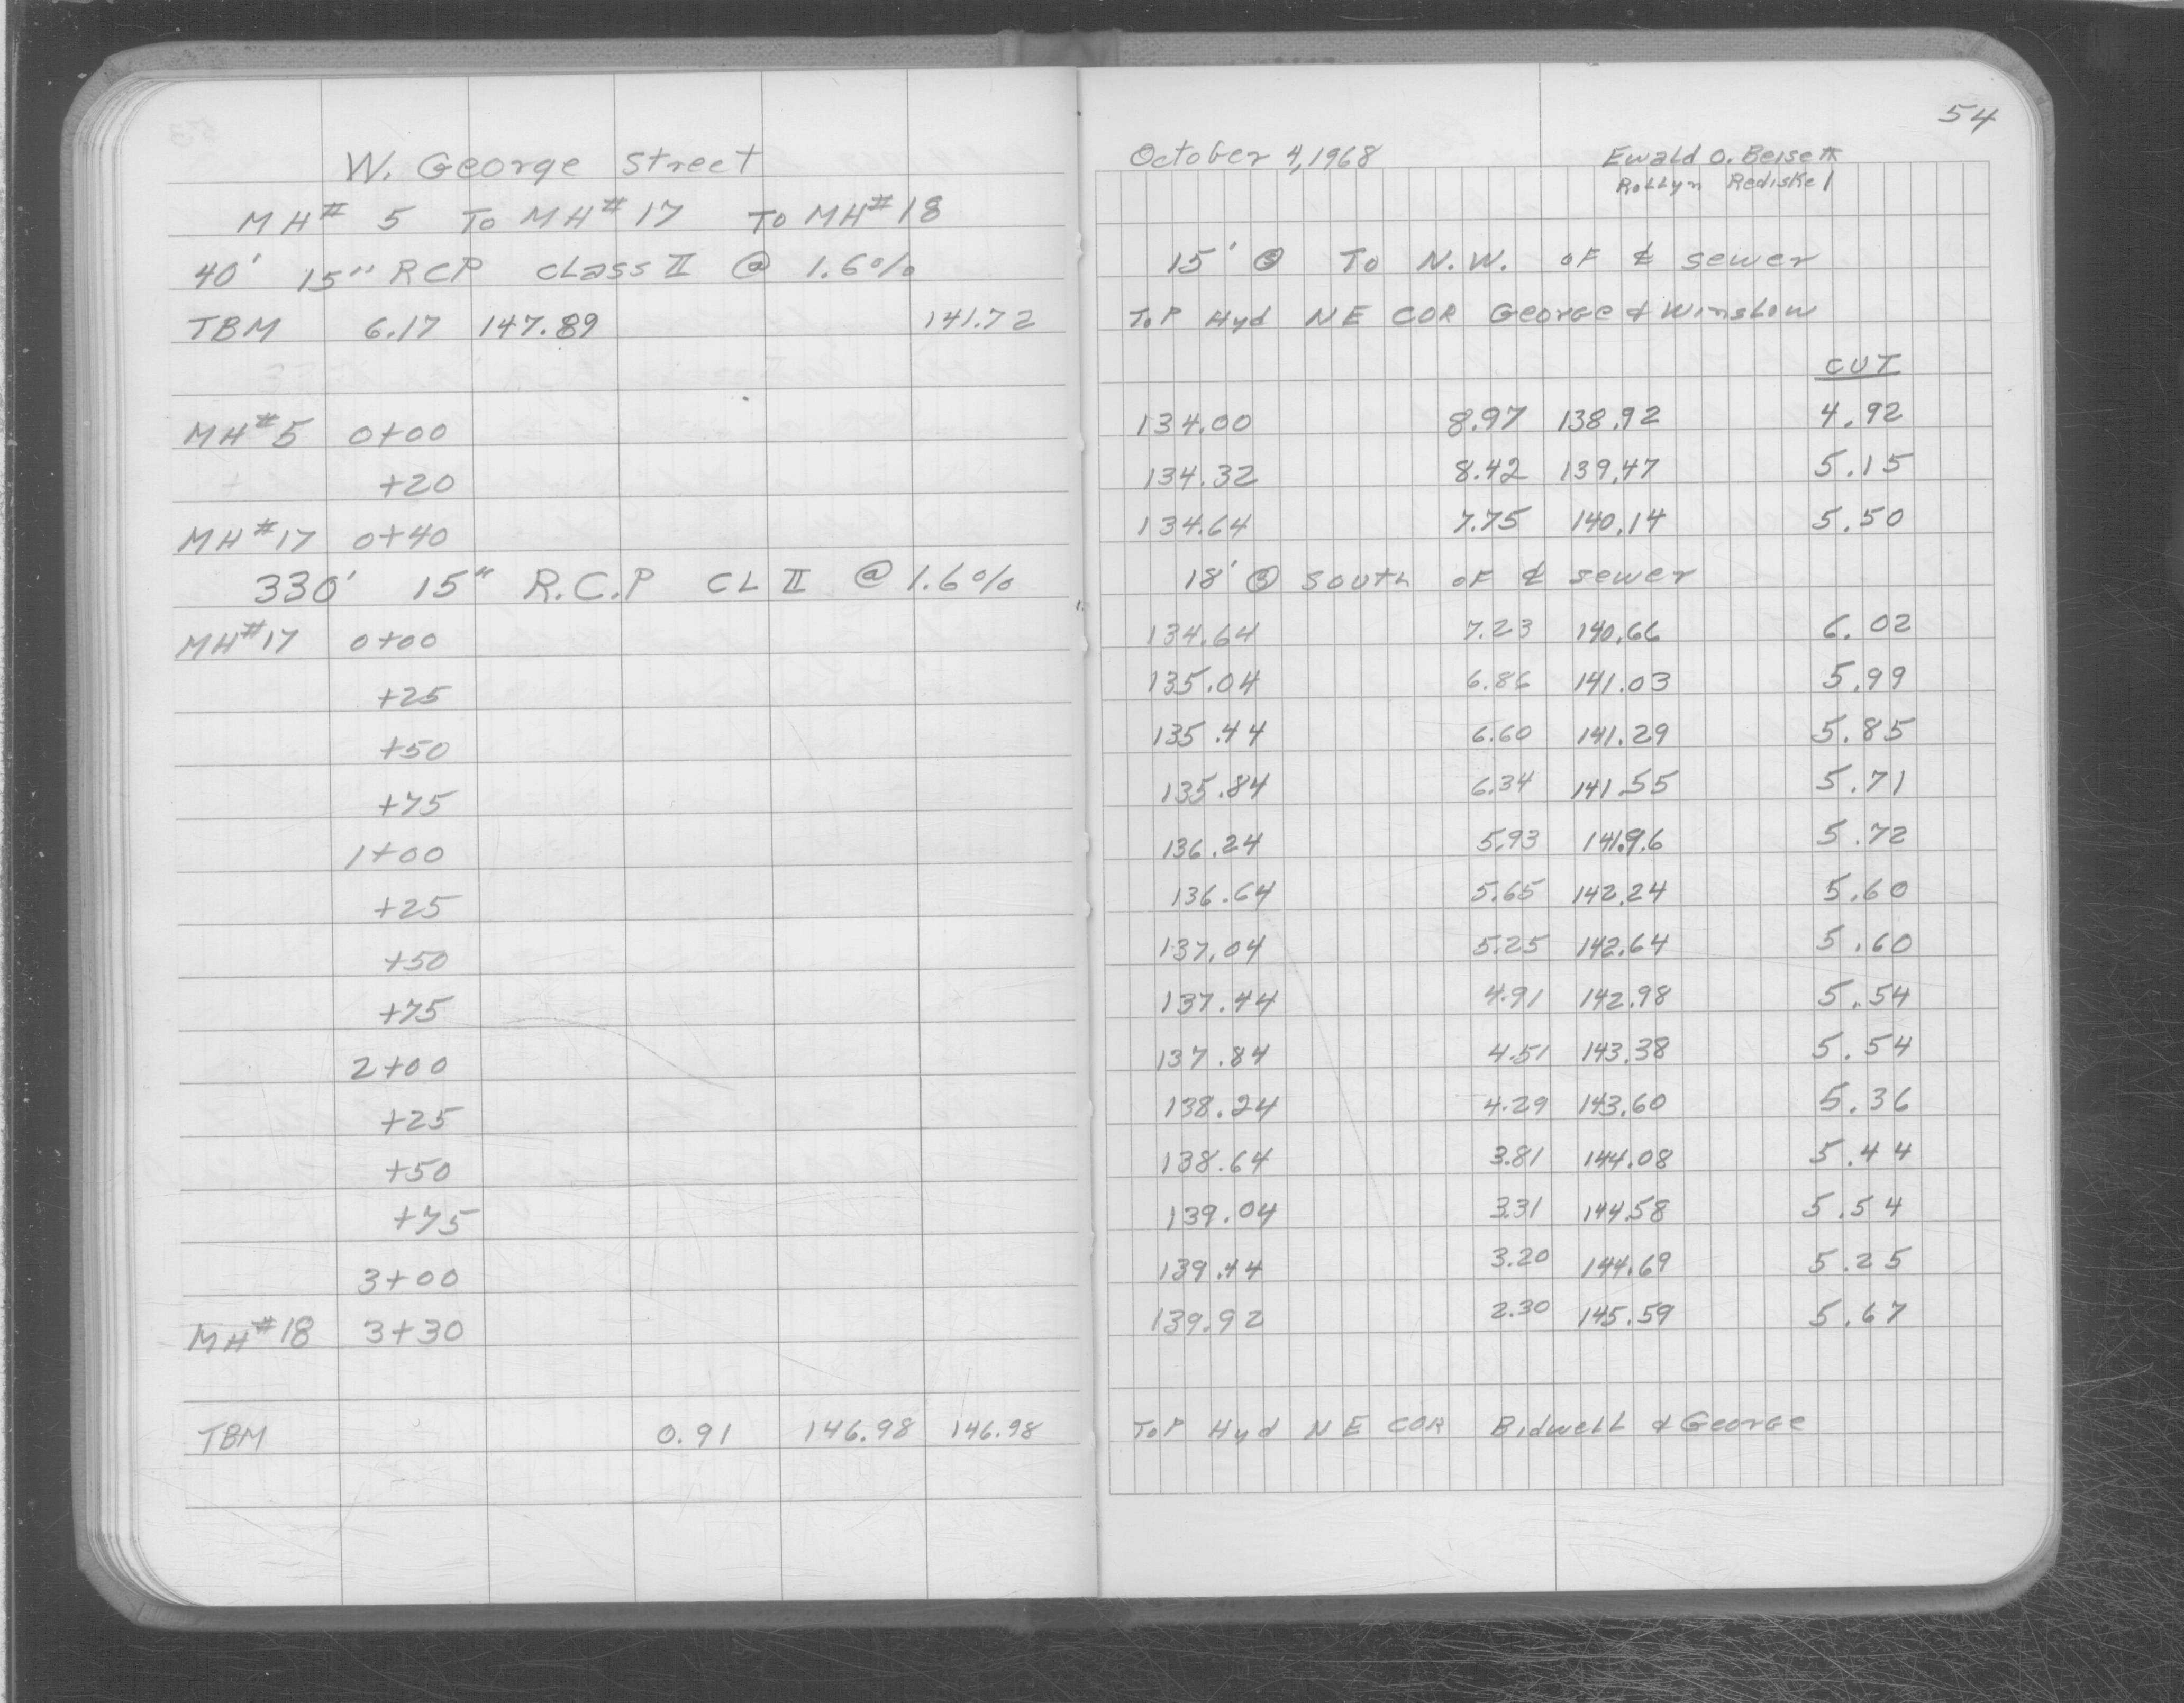 W. George Street
MH# 5 To MH# 17 To MH# 18
40' 15" RCP CLass II @ 1.6%
TBM 6.17 147.89 141.72
MH#5 0+00
+20
MH#17 0+40
330' 15" R.C.P CL II @ 1.6%
MH#17 0+00
+25
+50
+75
1+00
+25
+50
+75
2+00
+25
+50
+75
3+00
MH#18 3+30
TBM 0.91 146.98 146.98
54
October 4, 1968 Ewald O.
Rollyn
15' To N.W. oF ℄ sewer
ToP Hyd NE COR George & Winslow
CUT
134.00 8.97 138.92 4.92
134.32 8.42 139.47 5.15
134.64 7.75 140.14 5.50
18' south oF ℄ sewer
134.64 7.23 140.66 6.02
135.04 6.86 141.03 5.99
135.44 6.60 141.29 5.85
135.84 6.34 141.55 5.71
136.24 5.93 141.96 5.72
136.64 5.65 142.24 5.60
137.04 5.25 142.64 5.60
137.44 4.91 142.98 5.54
137.84 4.51 143.38 5.54
138.24 4.29 143.60 5.36
138.64 3.81 144.08 5.44
139.04 3.31 144.58 5.54
139.44 3.20 144.69 5.25
139.92 2.30 145.59 5.67
ToP Hyd NE COR Bidwell & George